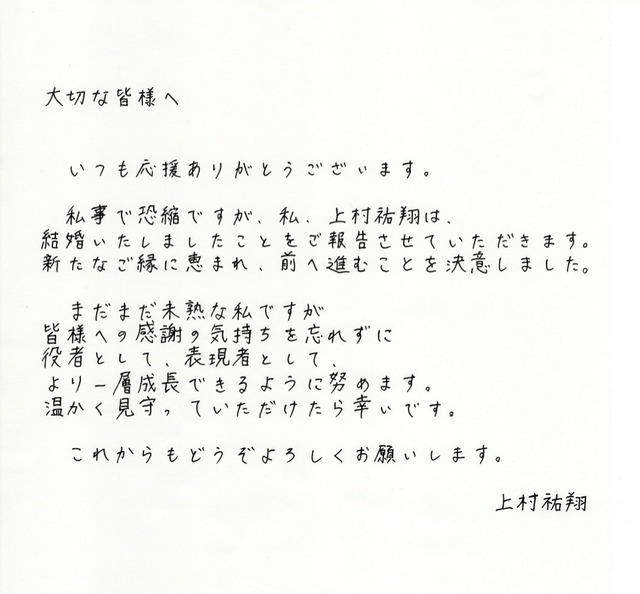 大切な皆様へ
いつも応援ありがとうございます。
私事で恐縮ですが、私、上村祐翔は、
結婚いたしましたことをご報告させていただきます。
新たなご縁に恵まれ、前へ進むことを決意しました。
まだまだ未熟な私ですが
皆様への感謝の気持ちを忘れずに
役者として、表現者として、
より一層成長できるように努めます。
温かく見守っていただけたら幸いです。
これからもどうぞよろしくお願いします。
上村祐翔